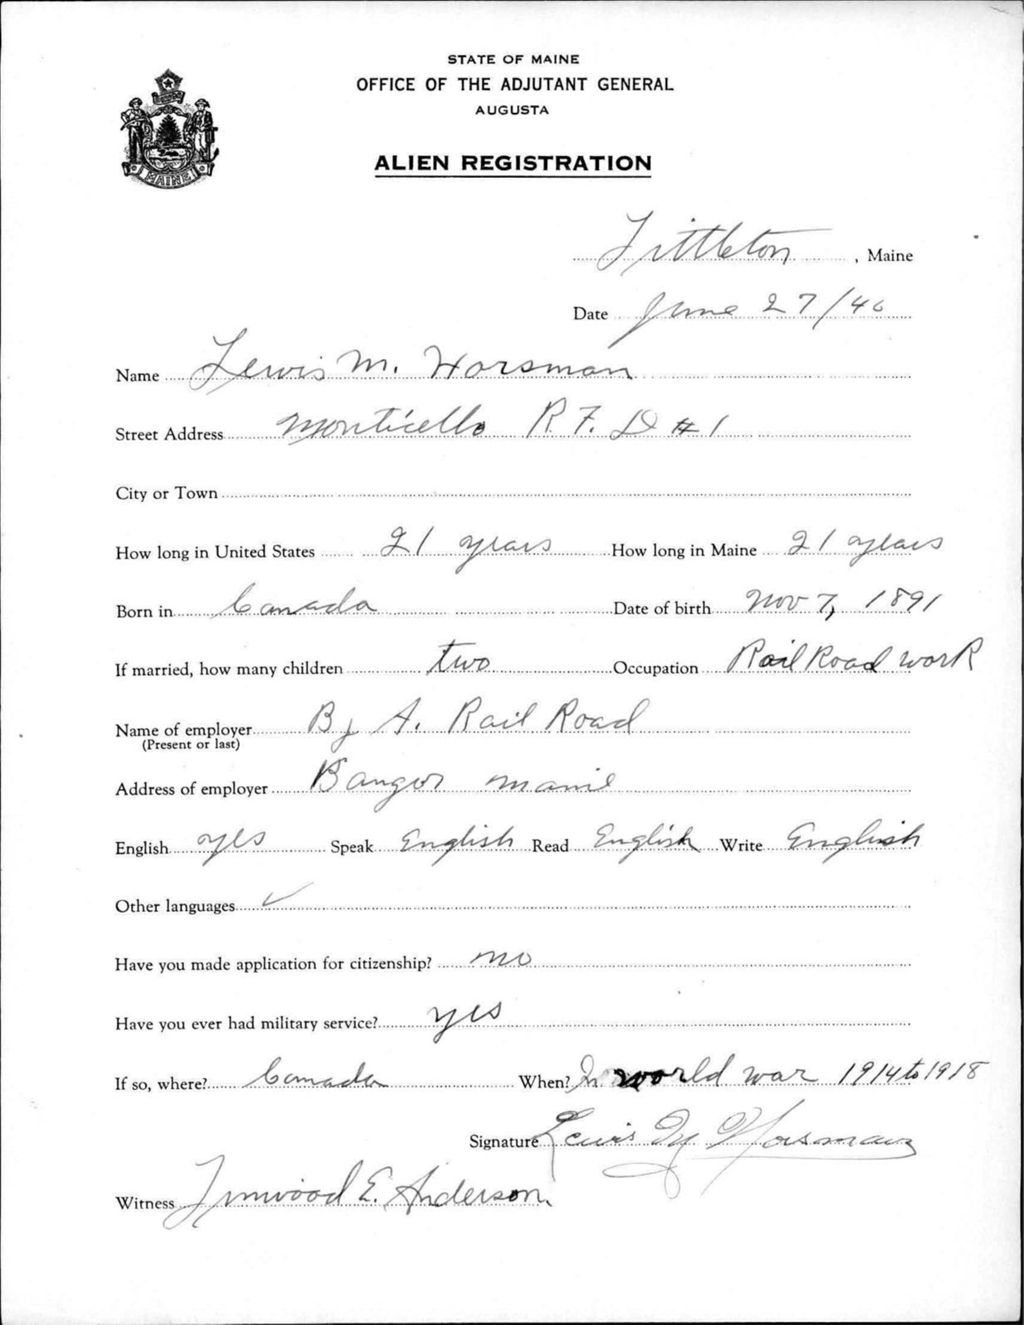 STATE OF MAINE
OFFICE OF THE ADJUTANT GENERAL
AUGUSTA
ALIEN REGISTRATION
MAINE
Littleton, Maine
Date June 27/40
Name Lewis M. Horsman
Street Address Monticello R.F.D #1
City or Town
How long in United States 21 years How long in Maine 21 years
Born in Canada Date of birth Nov 7, 1891
If married, how many children two Occupation Rail Road work
Name of employer B & A. Rail Road
(Present or last)
Address of employer Bangor Manie
English yes Speak English Read English Write English
Other languages ✓
Have you made application for citizenship? no
Have you ever had military service? yes
If so, where? Canada When? In world war 1914 to 1918
Signature Lewis M Horsman
Witness Linwood E. Anderson.